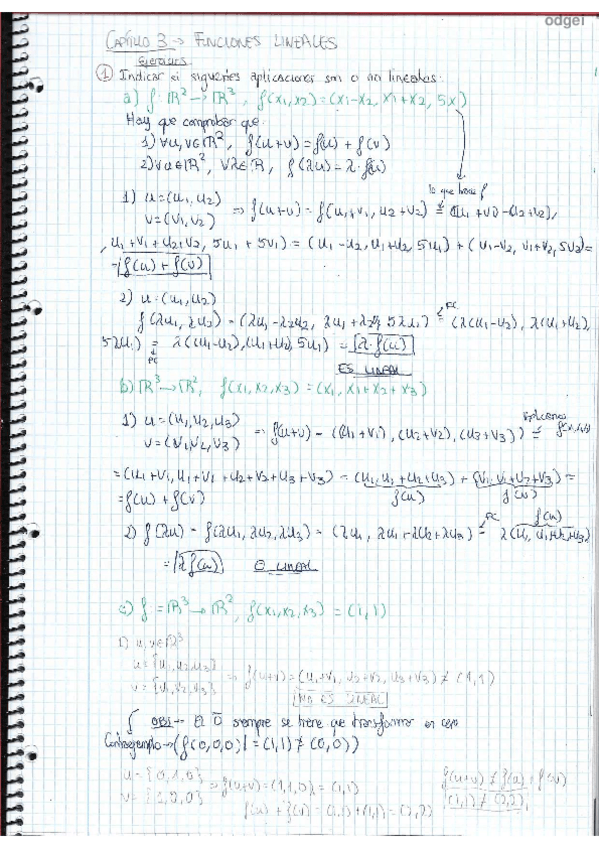 odgei
CAPÍTULO 3 → FUNCIONES LINEALES
Ejercicios
① Indicar si siguientes aplicaciones son o no lineales:
a) f: ℝ² → ℝ³, f(x₁,x₂) = (x₁-x₂, x₁+x₂, 5x)
Hay que comprobar que:
1) ∀u,v∈ℝ², f(u+v) = f(u) + f(v)
2) ∀u∈ℝ², ∀λ∈ℝ, f(λu) = λ·f(u)
lo que hace f
1) u=(u₁,u₂)
v=(v₁,v₂) ⇒ f(u+v) = f(u₁+v₁, u₂+v₂) = ((u₁+v₁)-(u₂+v₂),
, u₁+v₁+u₂+v₂, 5u₁+5v₁) = (u₁-u₂, u₁+u₂, 5u₁) + (v₁-v₂, v₁+v₂, 5v₁) =
= f(u) + f(v)
2) u=(u₁,u₂)
f(λu₁, λu₂) = (λu₁-λu₂, λu₁+λu₂, 5λu₁) = FC (λ(u₁-u₂), λ(u₁+u₂),
5λu₁) = λ((u₁-u₂),(u₁+u₂), 5u₁) = λ·f(u)
FC
ES LINEAL
b) ℝ³ → ℝ², f(x₁,x₂,x₃) = (x₁, x₁+x₂+x₃)
1) u=(u₁,u₂,u₃)
v=(v₁,v₂,v₃) ⇒ f(u+v) = ((u₁+v₁), (u₂+v₂), (u₃+v₃)) =
=(u₁+v₁, u₁+v₁+u₂+v₂+u₃+v₃) = (u₁, u₁+u₂+u₃) + (v₁, v₁+v₂+v₃) =
f(u) f(v)
= f(u) + f(v)
f(u)
2) f(λu) = f(λu₁, λu₂, λu₃) = (λu₁, λu₁+λu₂+λu₃) = FC λ(u₁, u₁+u₂+u₃)
= λf(u) LINEAL
c) f: ℝ³ → ℝ², f(x₁,x₂,x₃) = (1,1)
1) u,v∈ℝ³
u={u₁,u₂,u₃}
v={v₁,v₂,v₃} ⇒ f(u+v) = (u₁+v₁, u₂+v₂, u₃+v₃) ≠ (1,1)
NO ES LINEAL
OBS → El 0 siempre se tiene que transformar en cero
Contraejemplo → (f(0,0,0) = (1,1) ≠ (0,0))
u={0,1,0}
v={1,0,0} ⇒ f(u+v) = (1,1,0) = (1,1)
f(u) + f(v) = (1,1) + (1,1) = (2,2)
f(u+v) ≠ f(u) + f(v)
(1,1) ≠ (2,2)